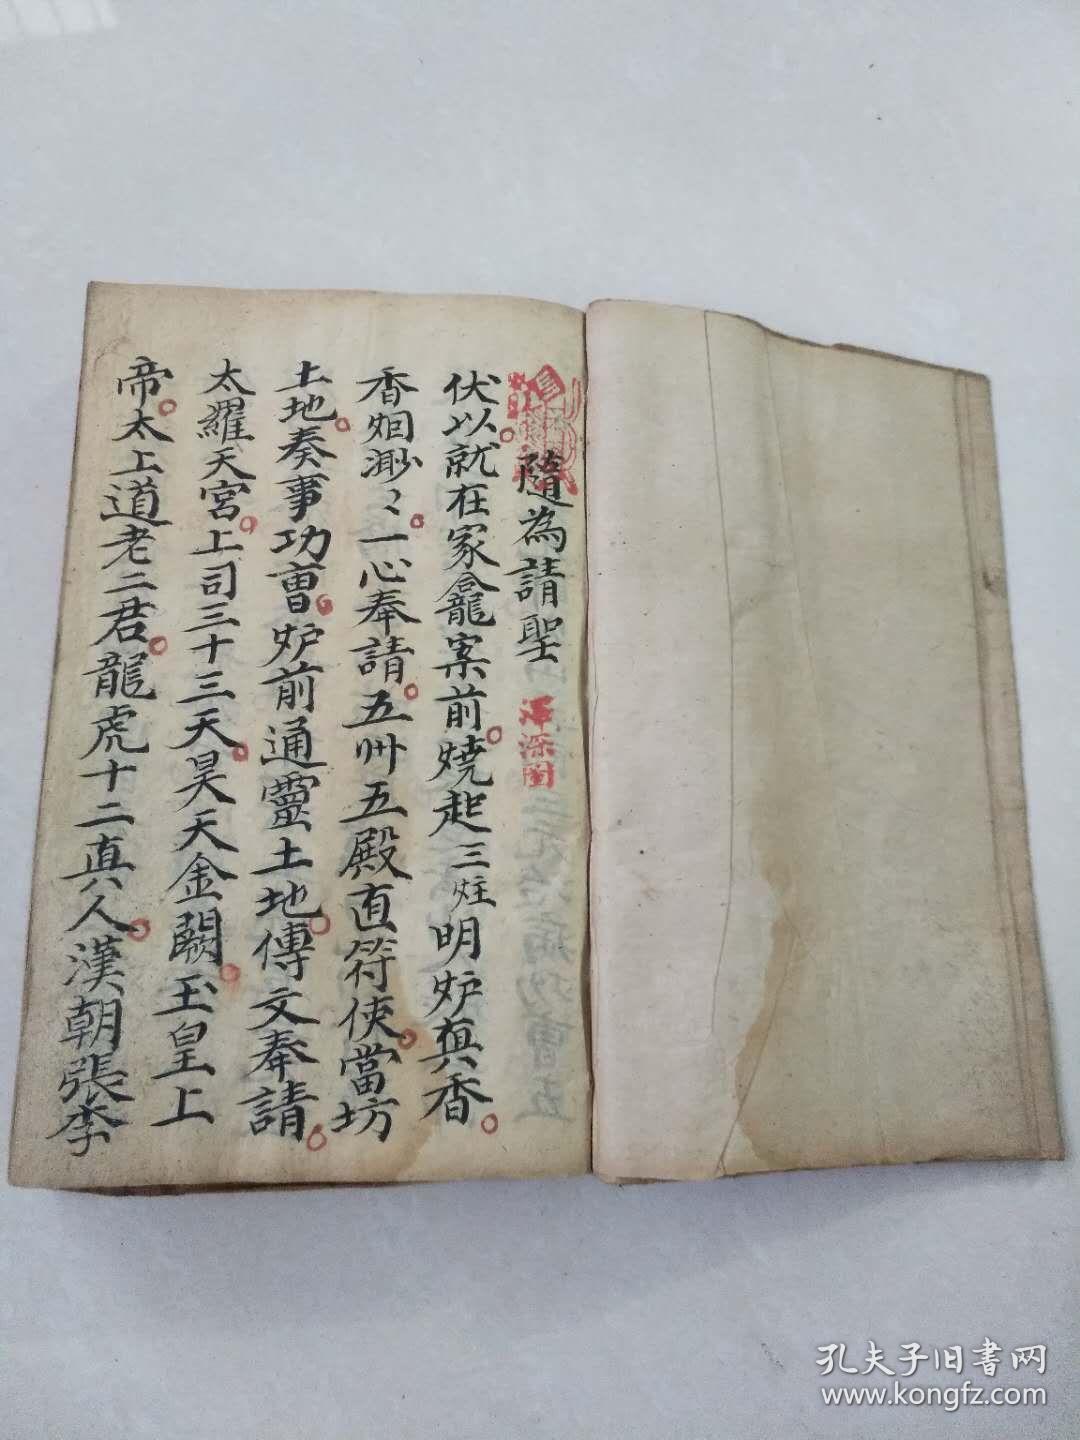 隨為請聖
伏以就在家龕案前燒起三炷明炉真香
香烟渺々一心奉請五卅五殿直符使當坊
土地奏事功曹炉前通靈土地傳文奉請
太羅天宮上司三十三天昊天金闕玉皇上
帝太上道老二君龍虎十二真人漢朝張李
孔夫子旧書网
www.kongfz.com